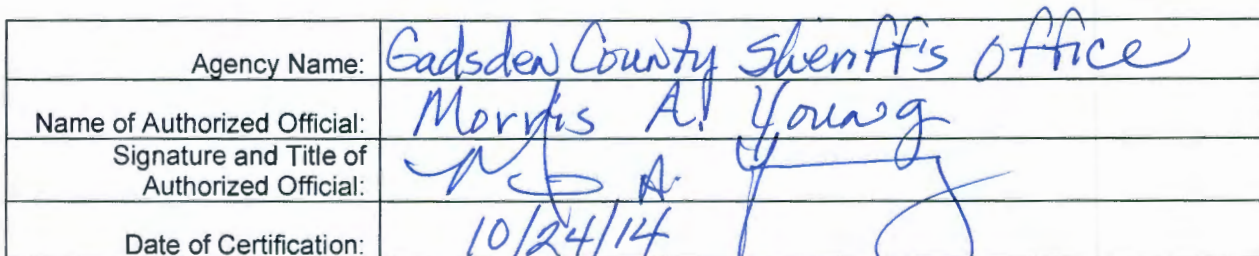 Agency Name: Gadsden County Sheriff's Office
Name of Authorized Official: Morris A. Young
Signature and Title of
Authorized Official: A.
Date of Certification: 10/24/14